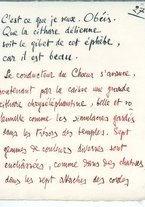 C'est ce que je veux. Obéis.
Que la cithare délienne
soit le gibet de cet éphèbe,
car il est beau.
Le conducteur du Chœur s'avance,
soutenant par la caisse une grande
cithare chryséléphantine, belle et
semblable comme les simulacres gardés
dans les trésors des temples. Sept
gemmes de couleurs diverses sont
enchâssées, comme dans des chatons
dans les sept attaches des cordes